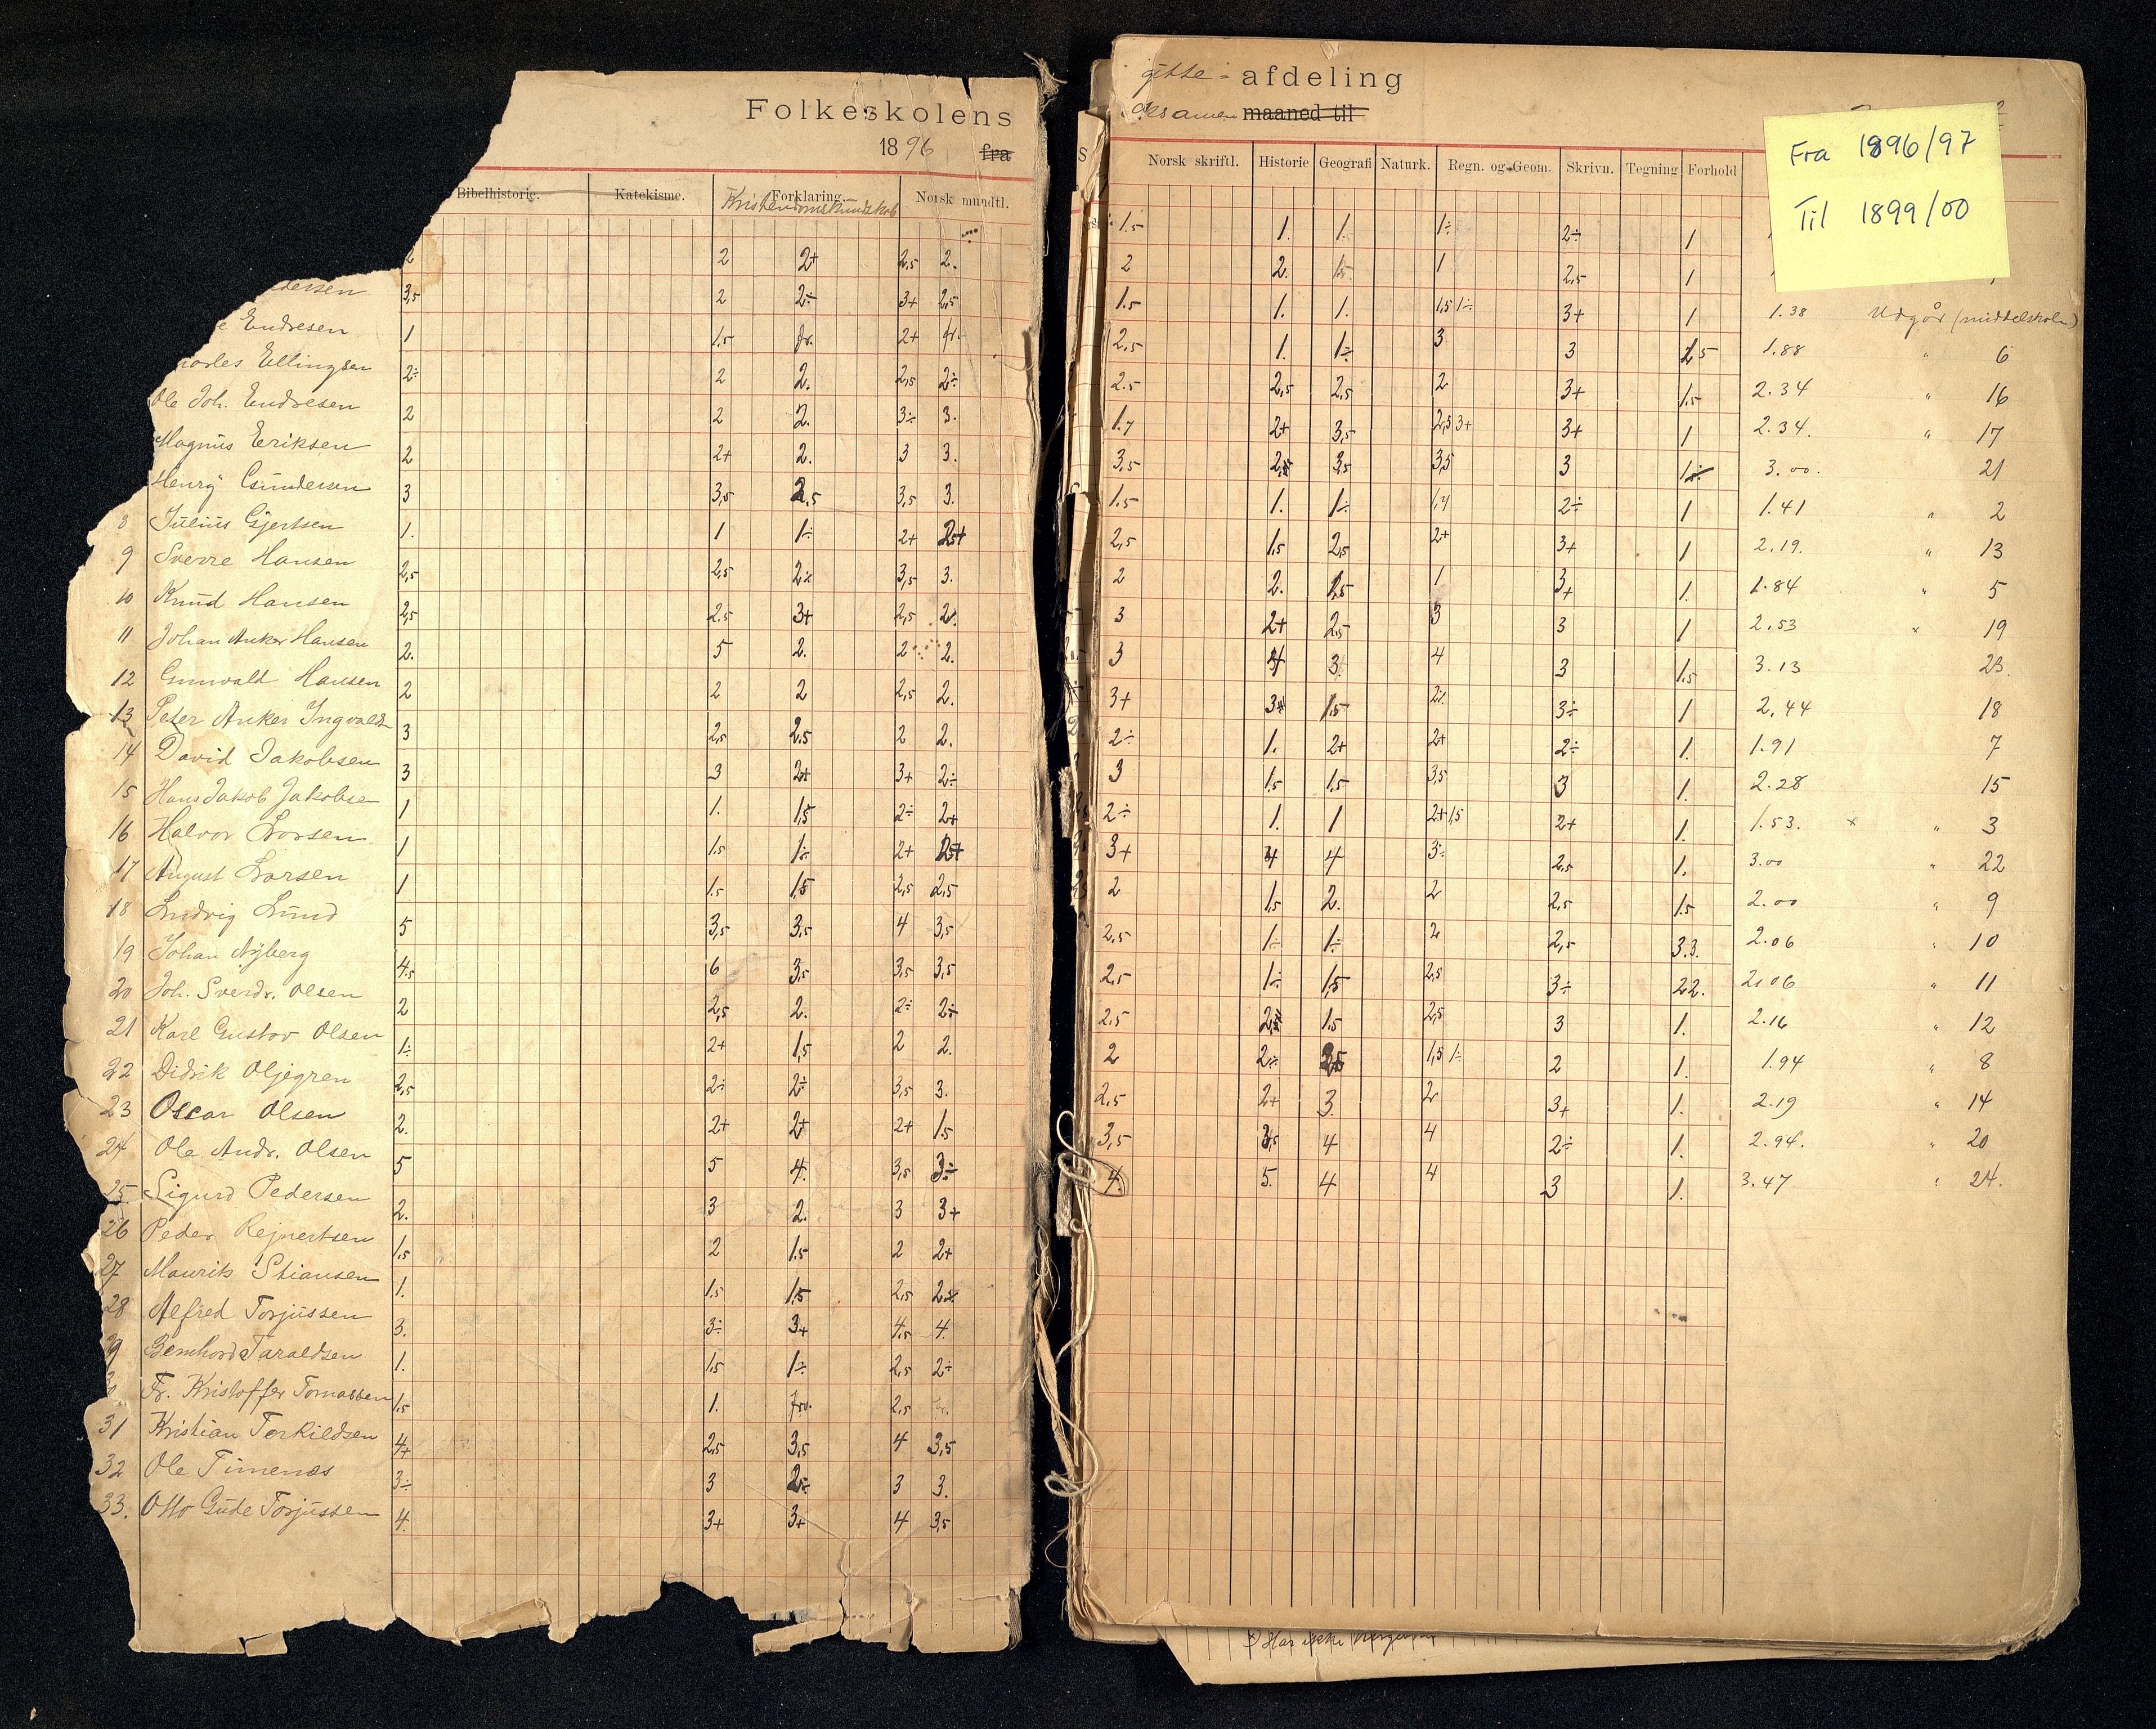 Folkeskolens
1896 fra
Bibelhistorie. Katekisme. Forklaring. Norsk mundtl.
Kristendomskundskab
2 2 2+ 2,5 2.
dersen 3,5 2 2÷ 3+ 2,5
e Endresen 1 1.5 fr. 2+ fr.
harles Ellingsen 2÷ 2 2. 2,5 2÷
Ole Joh. Endresen 2 2 2. 3÷ 3.
Magnus Eriksen 2 2+ 2. 3 3.
Henry Gundersen 3 3,5 2,5 3,5 3.
8 Julius Gjertsen 1. 1 1÷ 2+
9 Sverre Hansen 2,5 2,5 2÷ 3,5 3.
10 Knud Hansen 2,5 2.5 3+ 2,5 2.
11 Johan Anker Hansen 2. 5 2. 2 2.
12 Gunvald Hansen 2 2 2 2,5 2.
13 Peter Anker Ingvalds 3 2,5 2.5 2 2.
14 David Jakobsen 3 3 2+ 3+ 2÷
15 Hans Jakob Jakobsen 1 1. 1,5 2÷ 2+
16 Halvor Larsen 1 1.5 1÷ 2+
17 August Larsen 1 1.5 1,5 2,5 2,5
18 Ludvig Lund 5 3,5 3,5 4 3,5
19 Johan Nyberg 4.5 6 3,5 3,5 3,5
20 Joh. Sverdr. Olsen 2 2,5 2. 2÷ 2÷
21 Karl Gustav Olsen 1÷ 2+ 1,5 2 2.
22 Didrik Oljegren 2,5 2÷ 2÷ 3,5 3.
23 Oscar Olsen 2. 2+ 2+ 2+ 1.5
24 Ole Andr. Olsen 5 5 4. 3,5 3÷
25. Sigurd Pedersen 2. 3 2. 3 3+
26 Peder Rejnertsen 1.5 2 1.5 2 2+
27 Maurits Stiansen 1. 1.5 1,5 2,5 2÷
28 Alfred Torjussen 3. 3÷ 3+ 4,5 4.
9 Bernhard Taraldsen 1. 1.5 1÷ 2,5 2÷
Fr. Kristoffer Tomassen 1.5 1. frv. 2,5 fr.
31 Kristian Terkildsen 4+ 2,5 3,5 4 3,5
32 Ole Timenes 3÷ 3 2÷ 3 3.
33. Otto Gude Torjussen 4. 3+ 3+ 4 3,5
gutte - afdeling
eksamen maaned til
Norsk skriftl. Historie Geografi Naturk. Regn. og Geom. Skrivn. Tegning Forhold
Fra 1896/97
Til 1899/00
1.5 1. 1. 1÷ 2÷ 1
2 2. 1.5 1 2,5 1
1.5 1. 1. 1,5 1÷ 3+ 1 1.38 Udgår (middelskole)
2,5 1. 1÷ 3 3 1.88 " 6
2.5 2,5 2,5 2 3+ 1.5 2.34 " 16
1.7 2+ 3,5 2,5 3+ 3+ 1 2.34. " 17
3,5 2,5 3,5 3,5 3 3.00. 21
1.5 1. 1÷ 1,7 2÷ 1 1.41 " 2
2,5 1.5 2,5 2+ 3+ 1 2.19. " 13
2 2. 1,5 1 3+ 1. 1.84 " 5
3 2+ 2,5 3 3 1 2.53 " 19
3 4 3. 4 3 1.5 3.13 23.
3+ 3+ 1.5 2÷ 3÷ 1 2.44 18
2÷ 1. 2+ 2+ 2÷ 1. 1.91 7
3 1.5 1.5 3,5 3 1. 2.28 15
2÷ 1. 1 2+ 1,5 2+ 1. 1.53. x " 3
3+ 4 4 3÷ 2,5 1. 3.00 " 22
2 1.5 2. 2 2,5 1.5 2.00 " 9
2,5 1÷ 1÷ 2 2,5 3.3. 2.06 " 10
2,5 1÷ 1,5 2,5 3÷ 22. 2.06 " 11
2.5 2,5 1.5 2,5 3 1. 2.16 " 12
2 2÷ 2,5 1,5 1÷ 2 1. 1.94 " 8
2,5 2+ 3. 2 3+ 1. 2.19 " 14
3,5 3,5 4 4 2÷ 1. 2.94. " 20
4. 5. 4 4 3 1. 3.47 " 24.
Har ikke